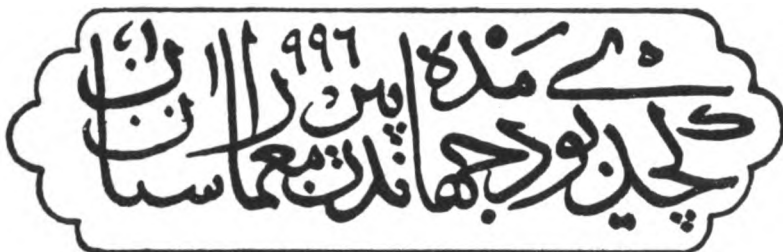 كچدی بو دمده جهاندن پیر معماران سنان ٩٩٦